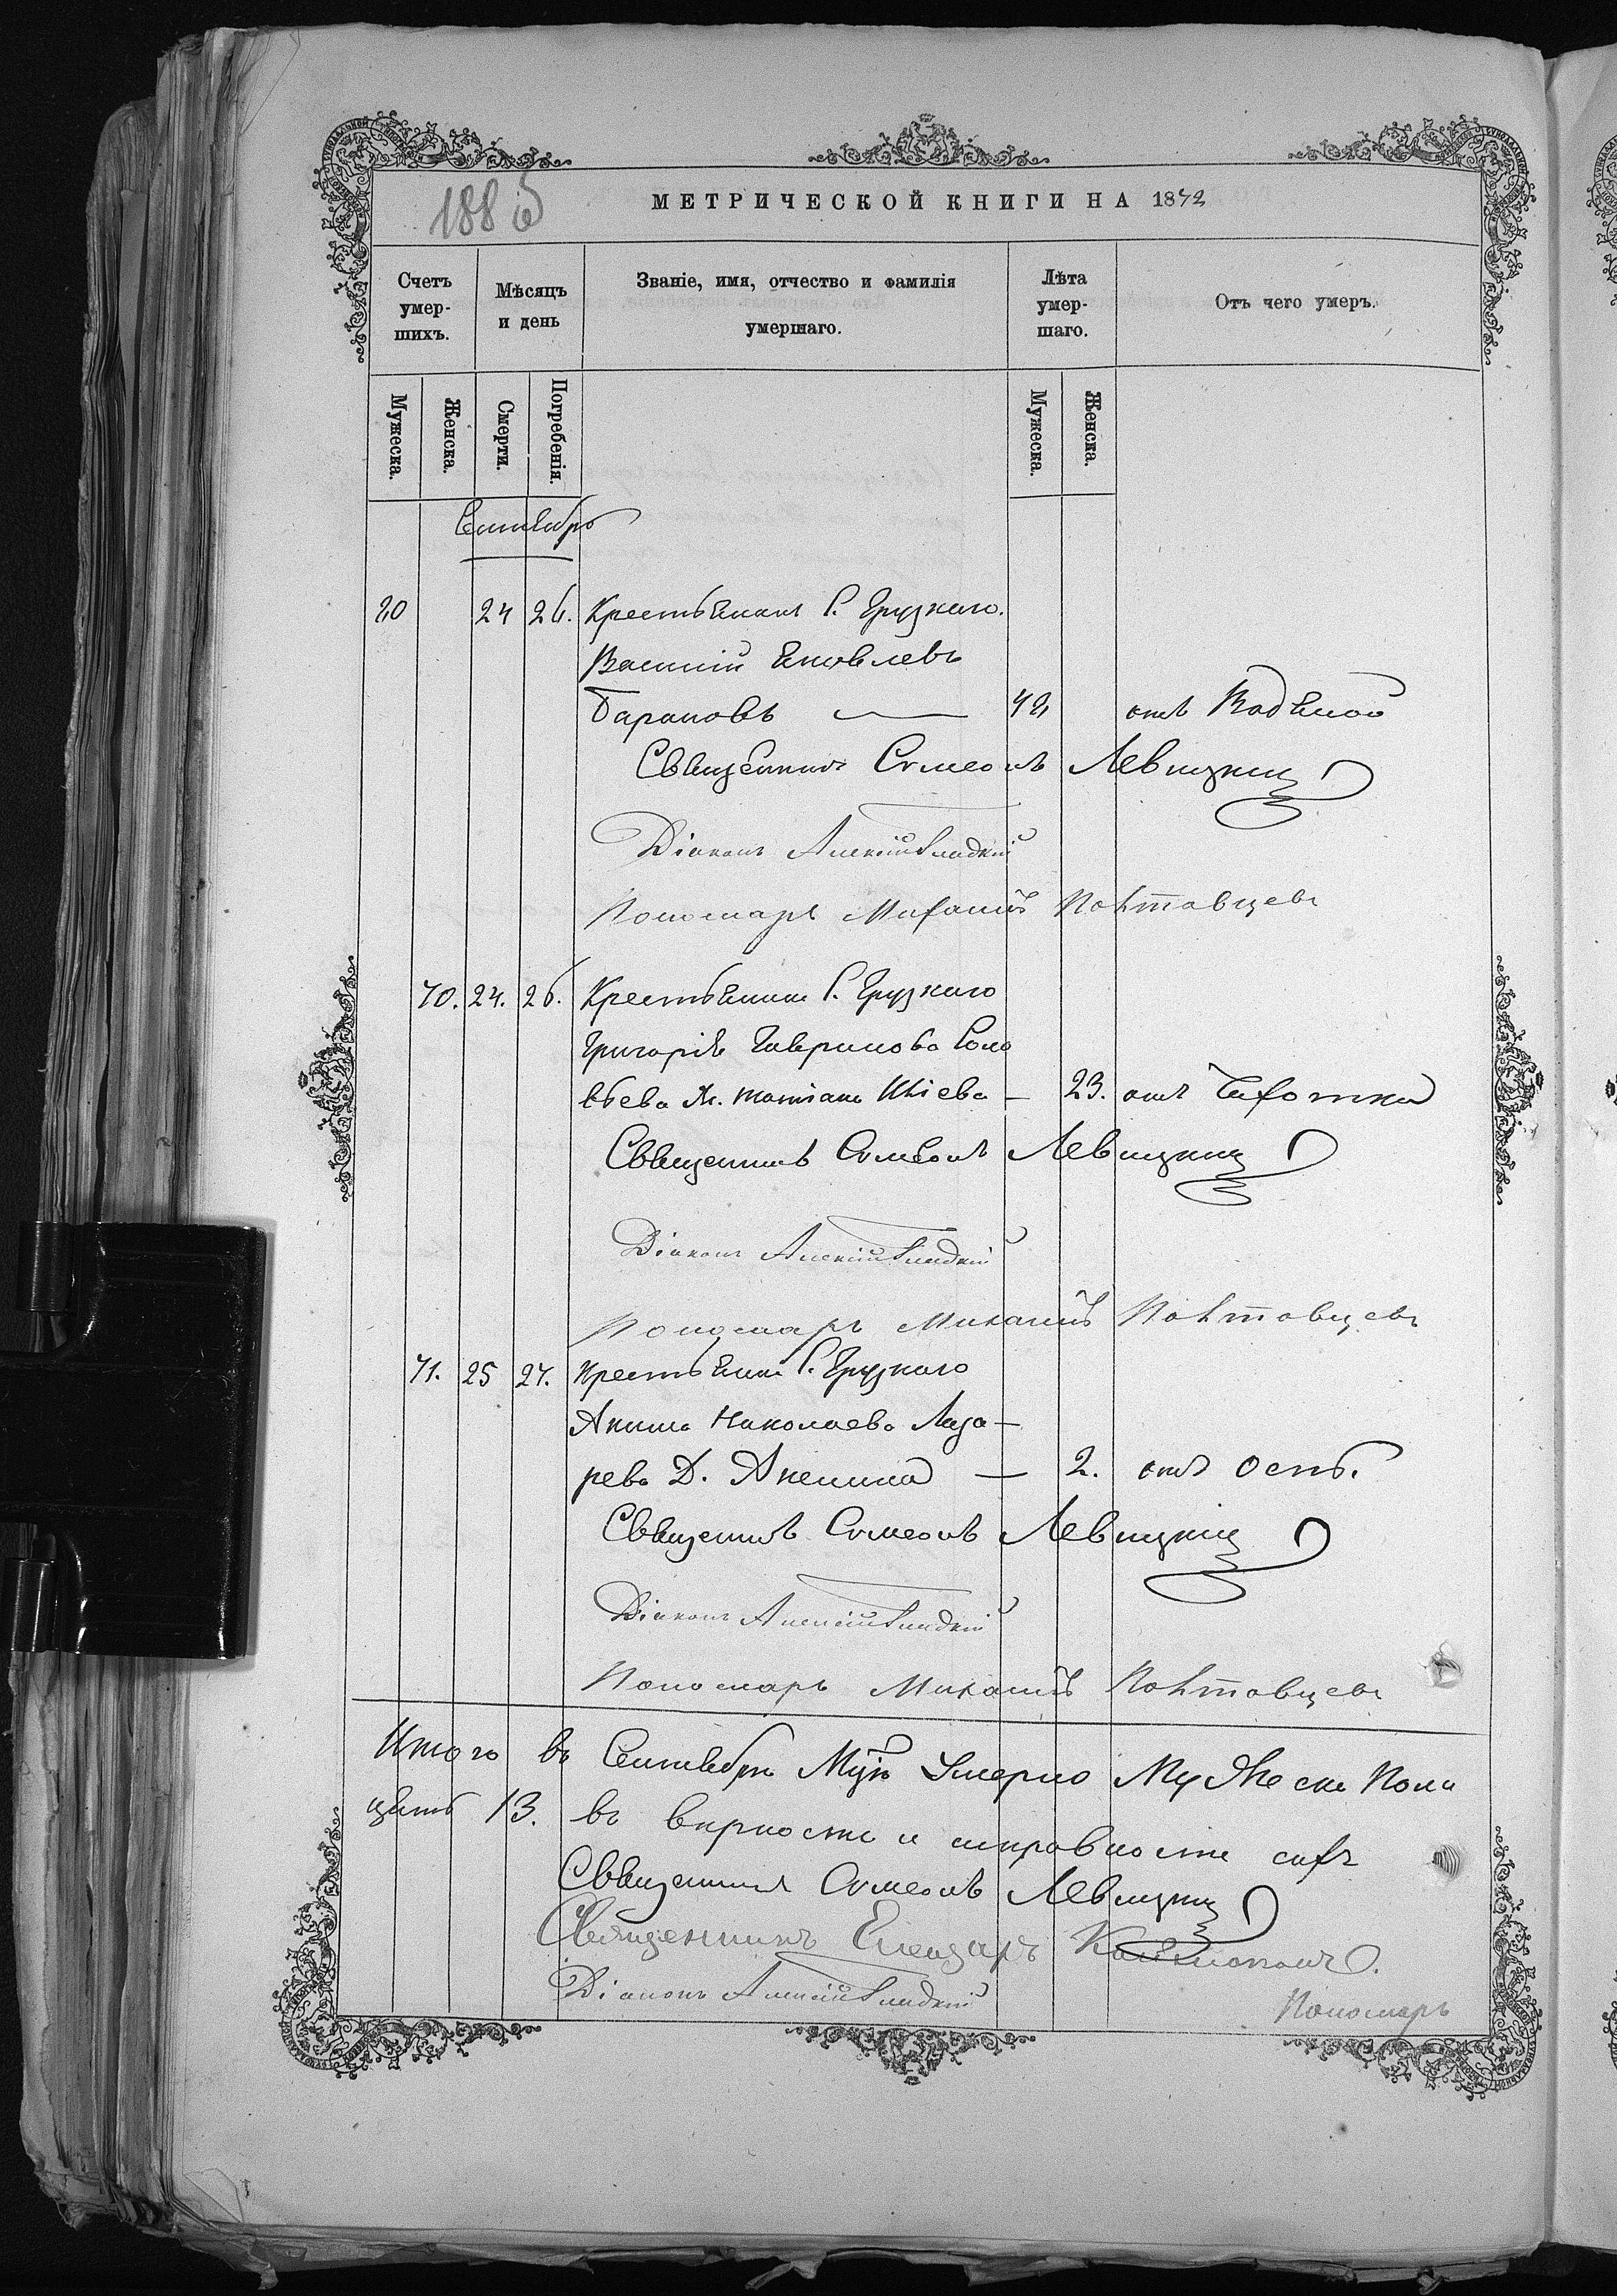 1886
МЕТРИЧЕСКОЙ КНИГИ НА 1872
Счетъ умер-шихъ.
Мѣсяцъ и день
Званіе, имя, отчество и фамилія умершаго.
Лѣта умер-шаго.
Отъ чего умеръ.
Мужеска. Женска. Смерти. Погребенія. Мужеска. Женска.
Сентябрь
24 26. Крестьянинъ С. Грузкаго.
Василій Яковлевъ
Барановъ — 42 отъ Водяной
Священникъ Симеонъ Левицкій
Діаконъ Алексій Гладкій
Пономарь Михаилъ Полтавцевъ
70. 24. 26. Крестьянина С. Грузкаго
Григорія Гаврилова Соло
вьева Ж. Татіана Ильева — 23. отъ Чахотки
Священникъ Симеонъ Левицкій
Діаконъ Алексій Гладкій
Пономарь Михаилъ Полтавцевъ
71. 25 27. Крестьянина С. Грузкаго
Якима Николаева Лаза-
рева Д. Акелина — 2. отъ Оспы.
Священникъ Симеонъ Левицкій
Діаконъ Алексій Гладкій
Пономарь Михаилъ Полтавцевъ
Итого въ Сентябрѣ М-цѣ Умерло Мужеска Пола
13. въ вѣрности и исправности сихъ
Священникъ Симеонъ Левицкій
Священникъ Елеазаръ
Діаконъ Алексій Гладкій
Пономарь